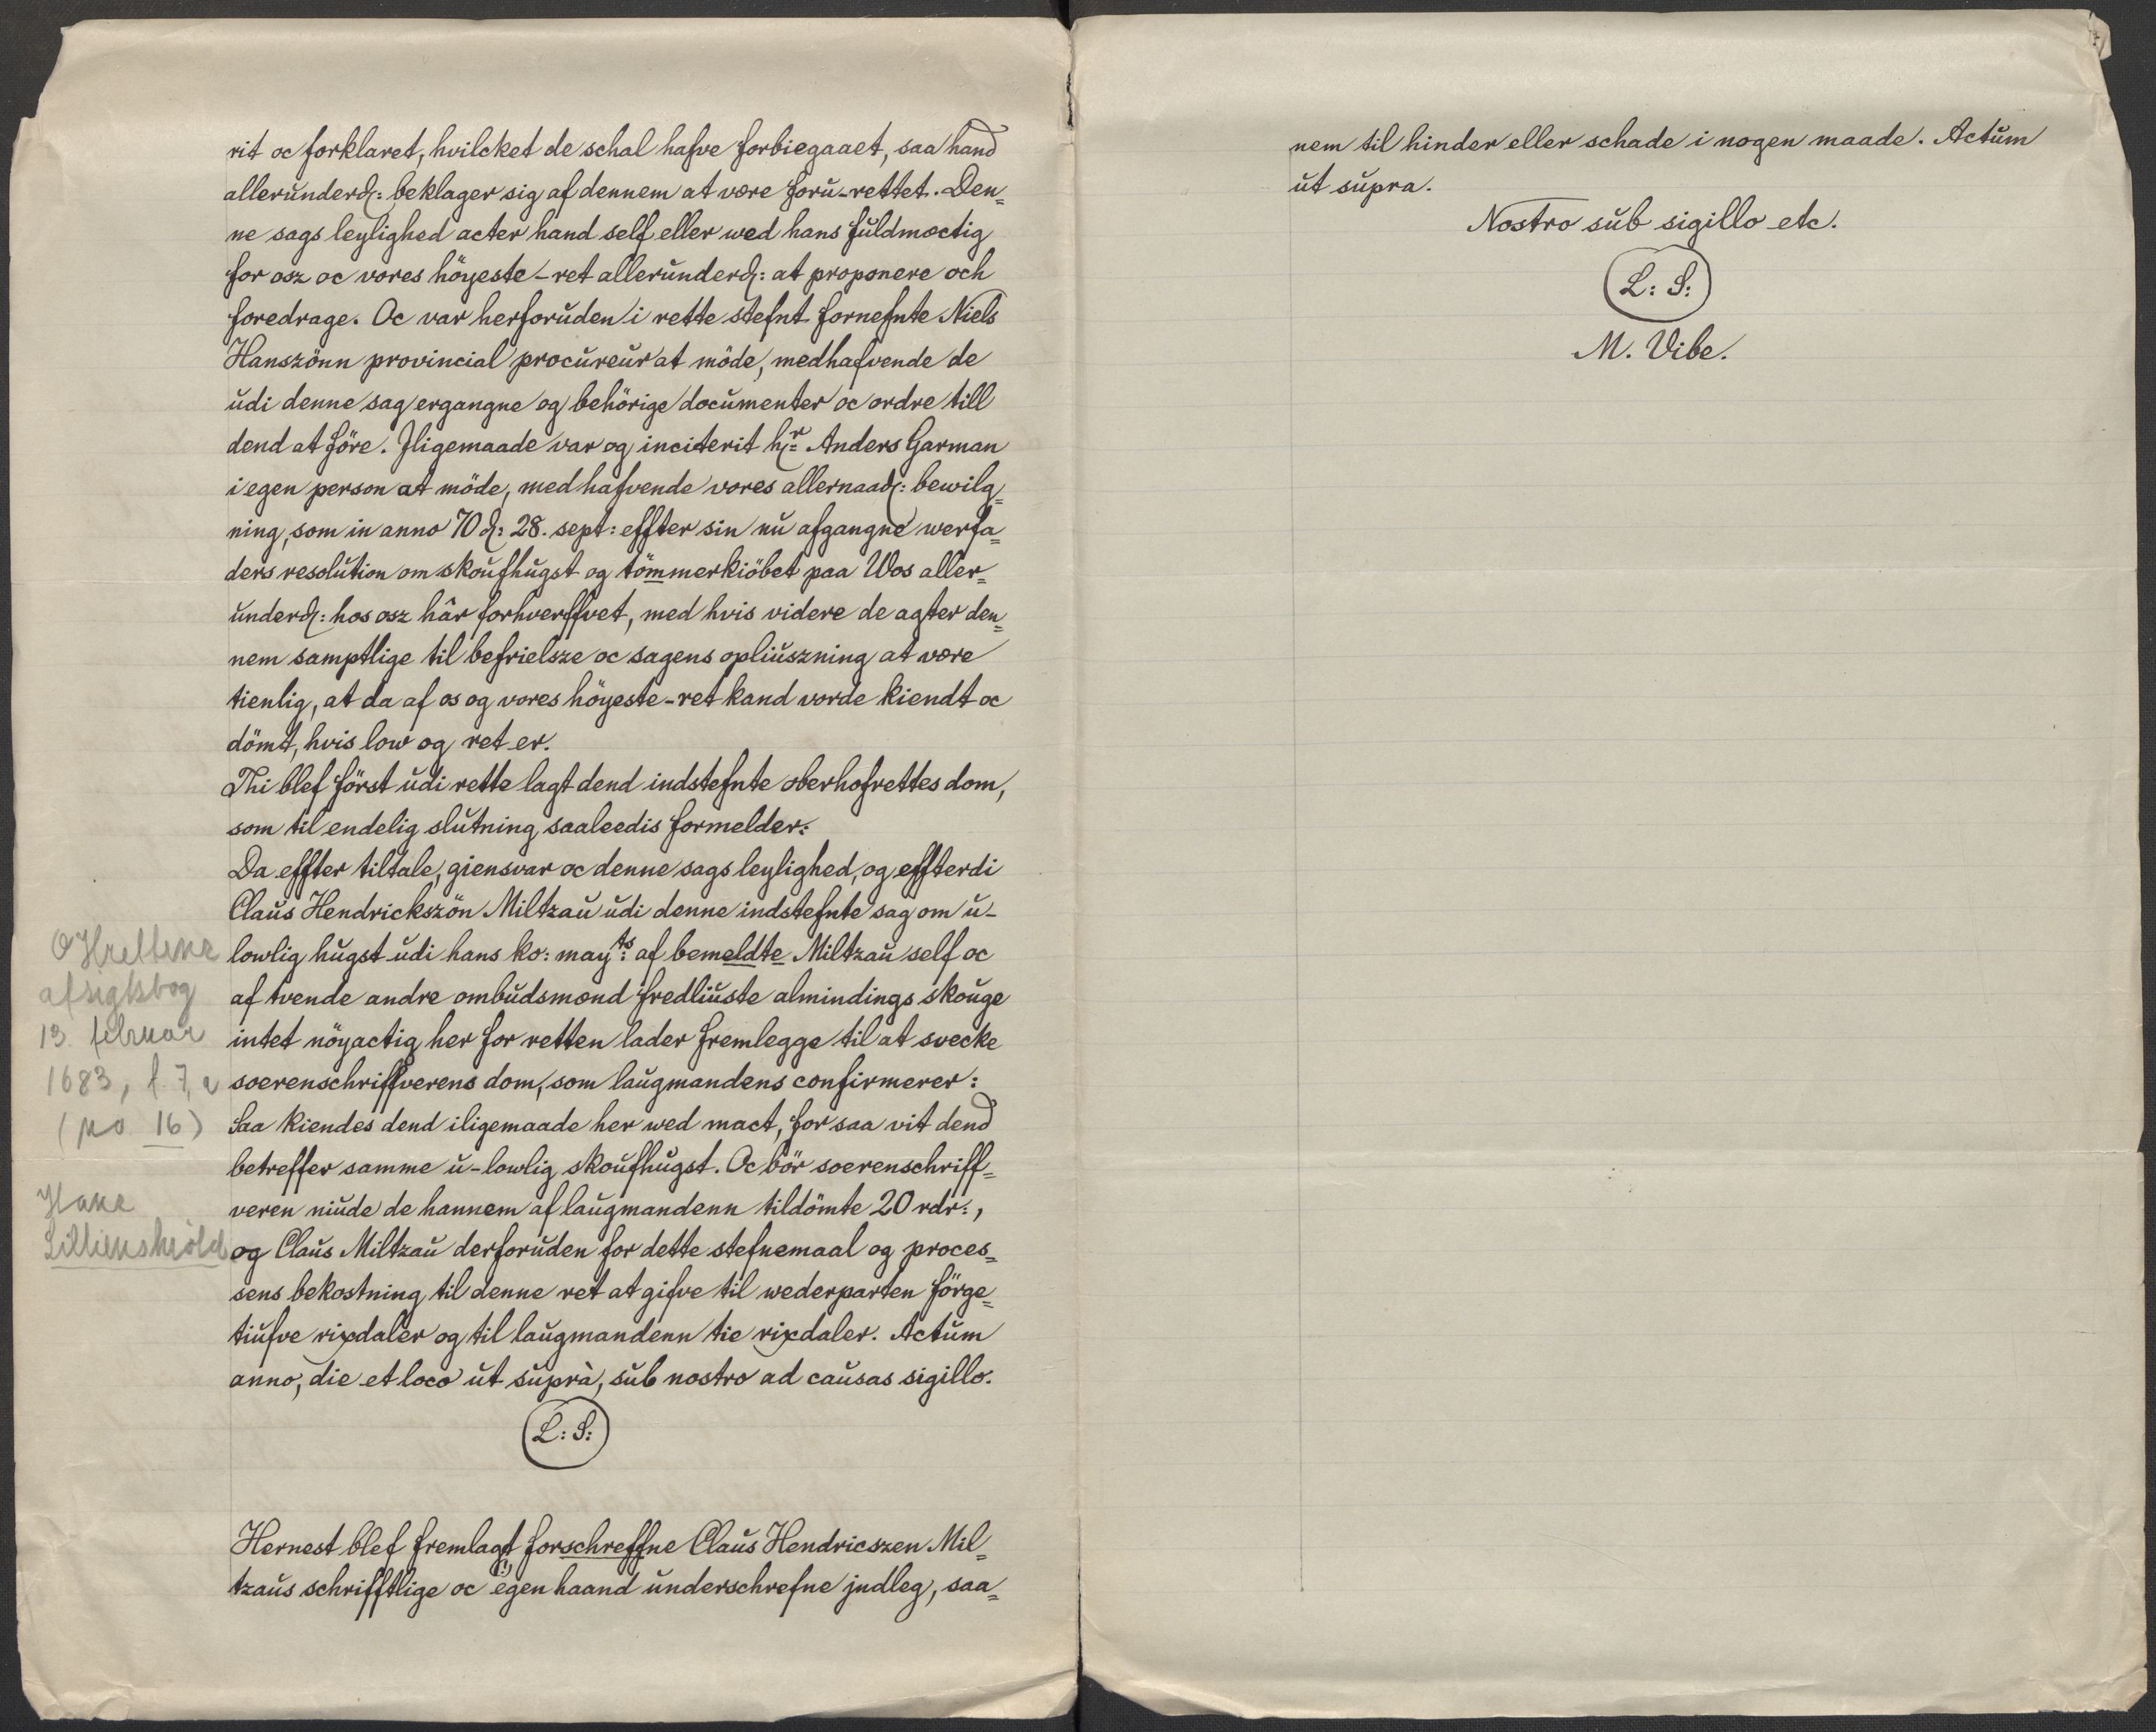 rit oc forklaret, hvilcket de schal hafve forbiegaaet, saa hand
allerunderd: beklager sig af dennem at være foru-rettet. Den=
ne sags leylighed acter hand self eller wed hans fuldmæctig
for osz oc vores höyeste-ret allerunderd: at proponere och
foredrage. Oc var herforuden i rette stefnt fornefnte Niels
Hanszönn provincial procureur at möde, medhafvende de
udi denne sag ergangne og behörige documenter oc ordre till
dend at före. Iligemaade var og inciterit hr= Anders Garman
i egen person at möde, med hafvende vores allernaad: bewilg=
ning, som in anno 70 d: 28. sept: effter sin nu afgangne werfa=
ders resolution om skoufhugst og tömmerkiöbet paa Wos aller=
underd: hos osz hâr forhverffvet, med hvis videre de agter den=
nem samptlige til befrielsze oc sagens opliuszning at være
tienlig, at da af os og vores höyeste-ret kand vorde kiendt oc
dömt, hvis low og ret er.
Thi blef först udi rette lagt dend indstefnte oberhofrettes dom,
som til endelig slutning saaleedis formelder:
Da effter tiltale, giensvar oc denne sags leylighed, og effterdi
Claus Hendrickszön Miltzau udi denne indstefnte sag om u-
lowlig hugst udi hans ko: mayts: af bemeldte Miltzau self oc
af tvende andre ombudsmænd fredliuste almindings skouge
intet nöyactig her for retten lader fremlegge til at svecke
soerenschriffverens dom, som laugmandens confirmerer:
Saa kiendes dend iligemaade her wed mact, for saa vit dend
betreffer samme u-lowlig skoufhugst. Oc bör soerenschriff=
veren niude de hannem af laugmandenn tildömte 20 rdr:,
og Claus Miltzau derforuden for dette stefnemaal og proces=
sens bekostning til denne ret at gifve til wederparten förge=
tiufve rixdaler og til laugmandenn tie rixdaler. Actum
anno, die et loco ut suprà, sub nostro ad causas sigillo.
L: S:
Hernest blef fremlagt forschreffne Claus Hendricszen Mil=
tzaus schrifftlige oc (!) egen haand underschrefne jndleg, saa=
OHrettene
afsigtsbog
13. februar
1683, f. 7, a
(no. 16)
Hans
Lillienskiöld
nem til hinder eller schade i nogen maade. Actum
ut supra.
Nostro sub sigillo etc.
L: S:
M. Vibe.